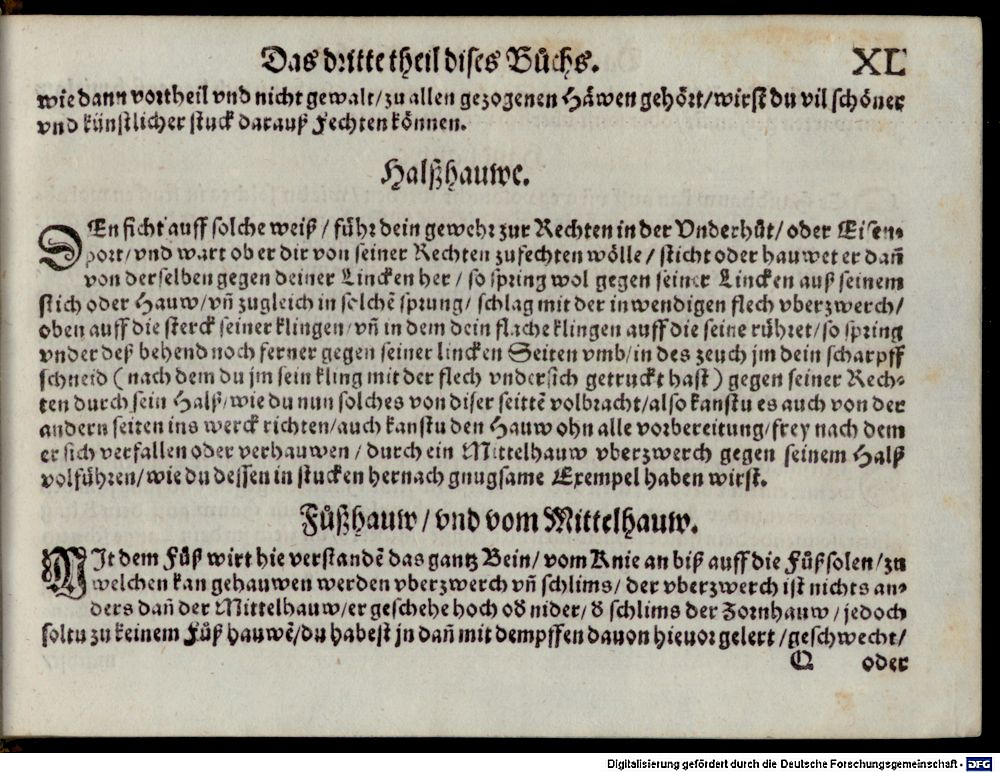 Das dritte theil dises Bůchs. XL
wie dann vortheil vnd nicht gewalt / zu allen gezogenen Häwen gehört / wirst du vil schöner
vnd künstlicher stuck darauß Fechten können.
Halßhauwe.
DEn ficht auff solche weiß / führ dein gewehr zur Rechten in der Vnderhůt / oder Eisen⸗
port / vnd wart ob er dir von seiner Rechten zufechten wölle / sticht oder hauwet er dañ
von derselben gegen deiner Lincken her / so spring wol gegen seiner Lincken auß seinem
stich oder Hauw / vñ zugleich in solchẽ sprung / schlag mit der inwendigen flech vberzwerch /
oben auff die sterck seiner klingen / vñ in dem dein flache klingen auff die seine rühret / so spring
vnder deß behend noch ferner gegen seiner lincken Seiten vmb / in des zeuch jm dein scharpff
schneid (nach dem du jm sein kling mit der flech vndersich getruckt hast) gegen seiner Rech⸗
ten durch sein Halß / wie du nun solches von diser seittẽ volbracht / also kanstu es auch von der
andern seiten ins werck richten / auch kanstu den Hauw ohn alle vorbereitung / frey nach dem
er sich verfallen oder verhauwen / durch ein Mittelhauw vberzwerch gegen seinem Halß
volführen / wie du dessen in stucken hernach gnugsame Exempel haben wirst.
Fůßhauw / vnd vom Mittelhauw.
MIt dem Fůß wirt hie verstandẽ das gantz Bein / vom Knie an biß auff die Fůßsolen / zu
welchen kan gehauwen werden vberzwerch vñ schlims / der vberzwerch ist nichts an⸗
ders dañ der Mittelhauw / er geschehe hoch oð nider / ð schlims der Zornhauw / jedoch
soltu zu keinem Fůß hauwẽ / du habest jn dañ mit dempffen dauon hieuor gelert / geschwecht /
Q oder
Digitalisierung gefördert durch die Deutsche Forschungsgemeinschaft - DFG